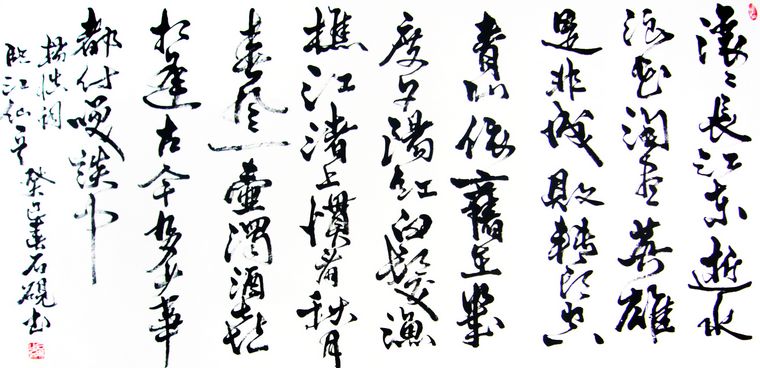 滾〻長江東逝水
浪花淘盡英雄
是非成敗轉頭空
青山依舊在幾
度夕陽紅白髮漁
樵江渚上慣看秋月
春風一壺濁酒喜
相逢古今多少事
都付咲談中
楊慎詞
臨江仙一首癸巳春石硯書